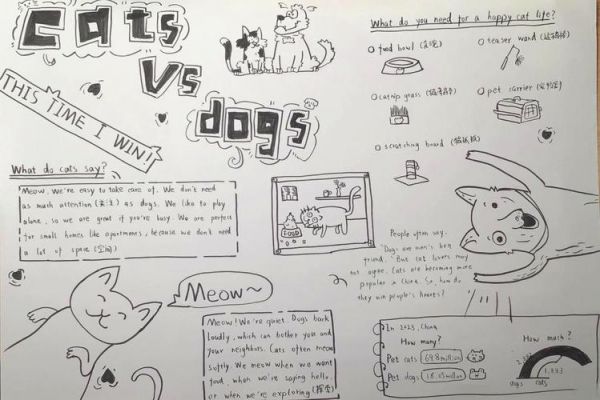 cats
Vs
dogs
THIS TIME I WIN!!
What do you need for a happy cat life?
food bowl
teaser wand (逗猫棒)
catnip grass (猫草)
pet carrier
scratching board (猫抓板)
What do cats say?
Meow, We're easy to take care of. We don't need
as much attention (关注) as dogs. We like to play
alone, so we are great if you're busy. We are perfect
for small homes like apartments, because we don't need
a lot of space. (空间)
FOOD
People often say,
"Dogs are men's best
friend." But cat lovers may
not agree. Cats are becoming more
popular in China. So, how do
they win people's hearts?
Meow~
Meow! We're quiet. Dogs bark
loudly, which can bother you and
your neighbors. Cats often meow
softly. We meow when we want
food, when we're saying hello,
or when we're exploring (探索)
In 2023, China
How many?
How much?
Pet cats 69.8 million
Pet dogs
dogs cats